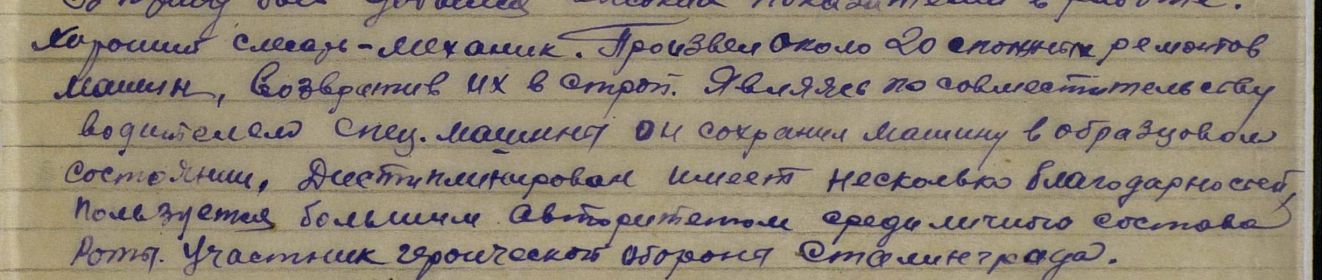 показатели в работе.
Хороший слесарь-механик. Произвел около 20 сложных ремонтов
машин, возвратив их в строй. Являясь по совместительству
водителем спец. машины он сохранил машину в образцовом
состоянии. Дисциплинирован имеет несколько благодарностей,
пользуется большим авторитетом среди личного состава
роты. Участник героической обороны Сталинграда.